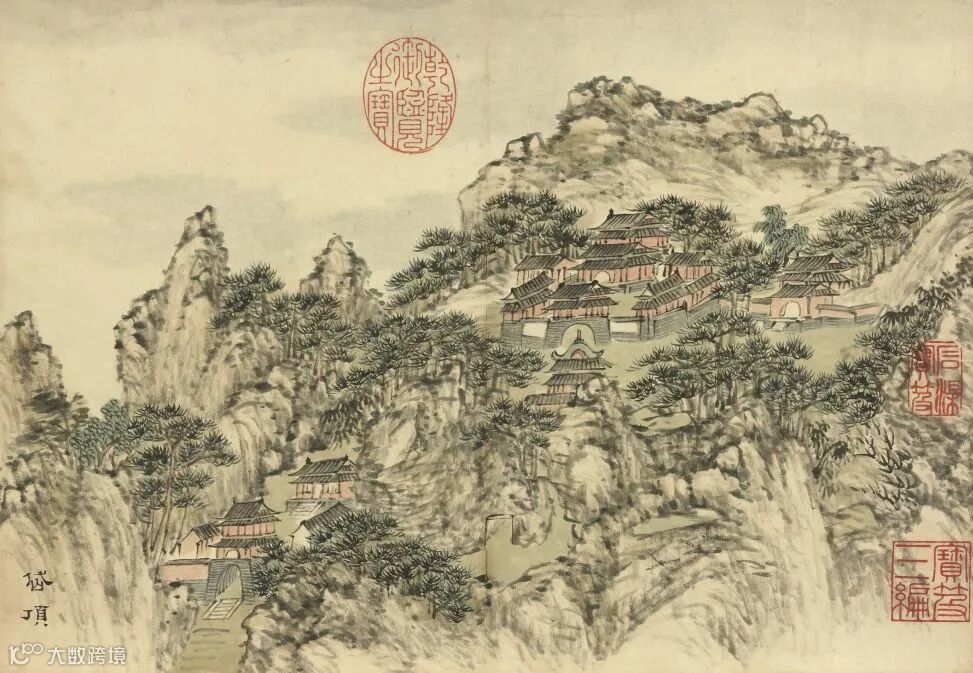 乾隆
御覽
之寶
石渠
寶笈
寶笈
三編
岱頂
大数跨境